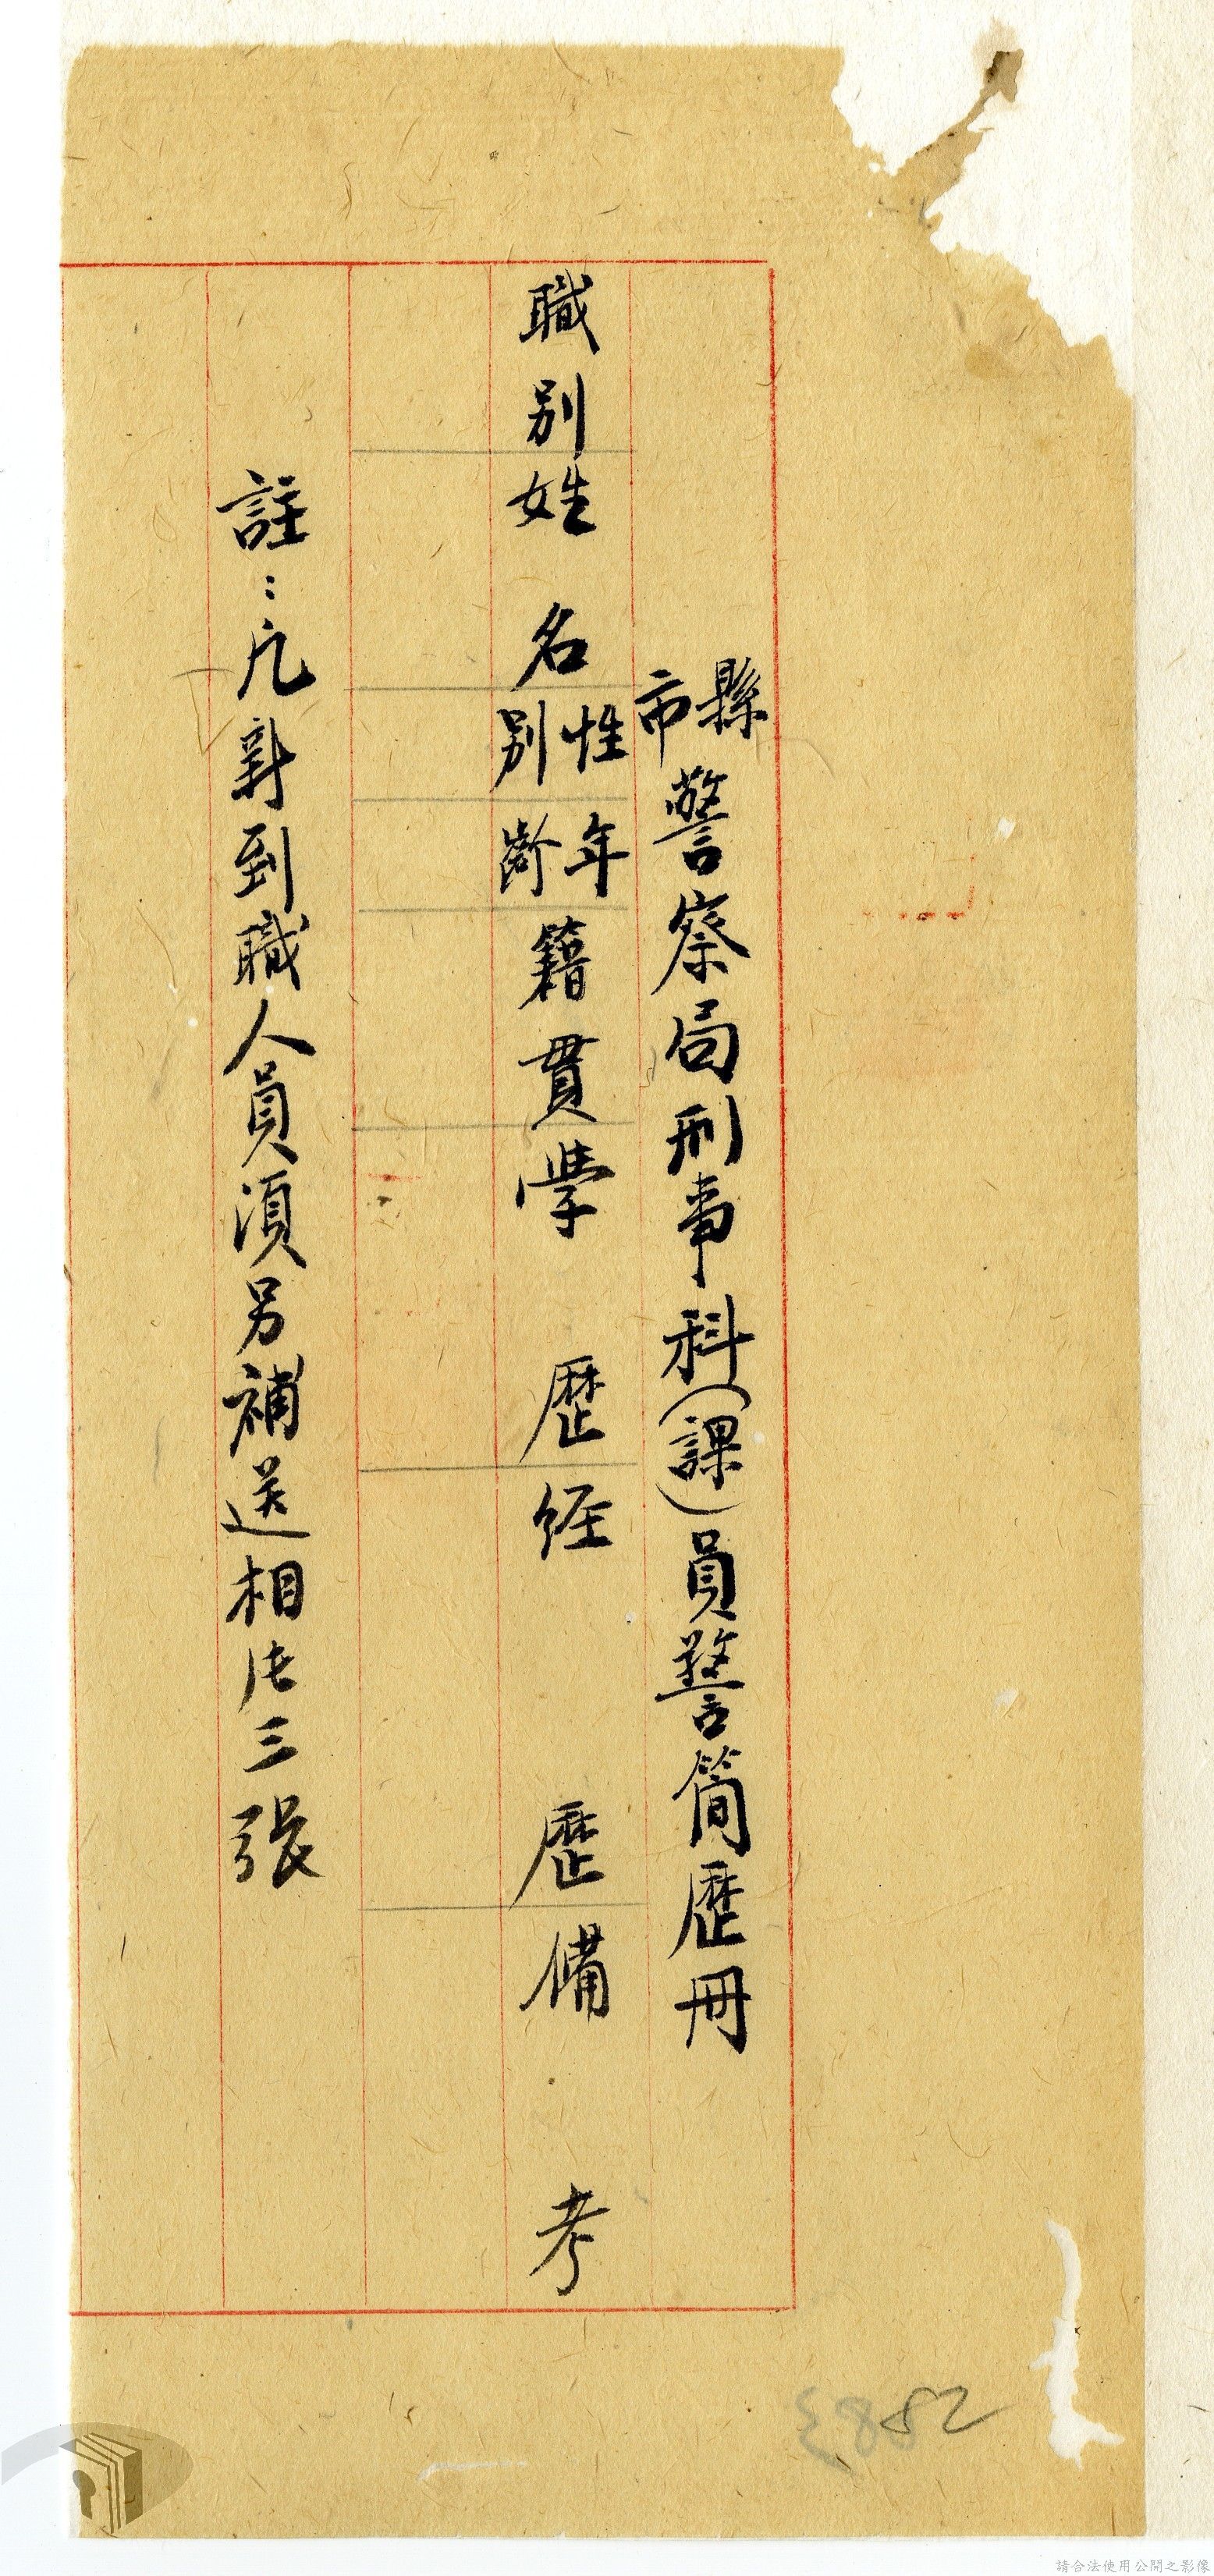 縣市警察局刑事科(課)員警簡歷冊
職別姓名性別年齡籍貫學歷經歷備考
註:凡新到職人員須另補送相片三張
請合法使用公開之影像